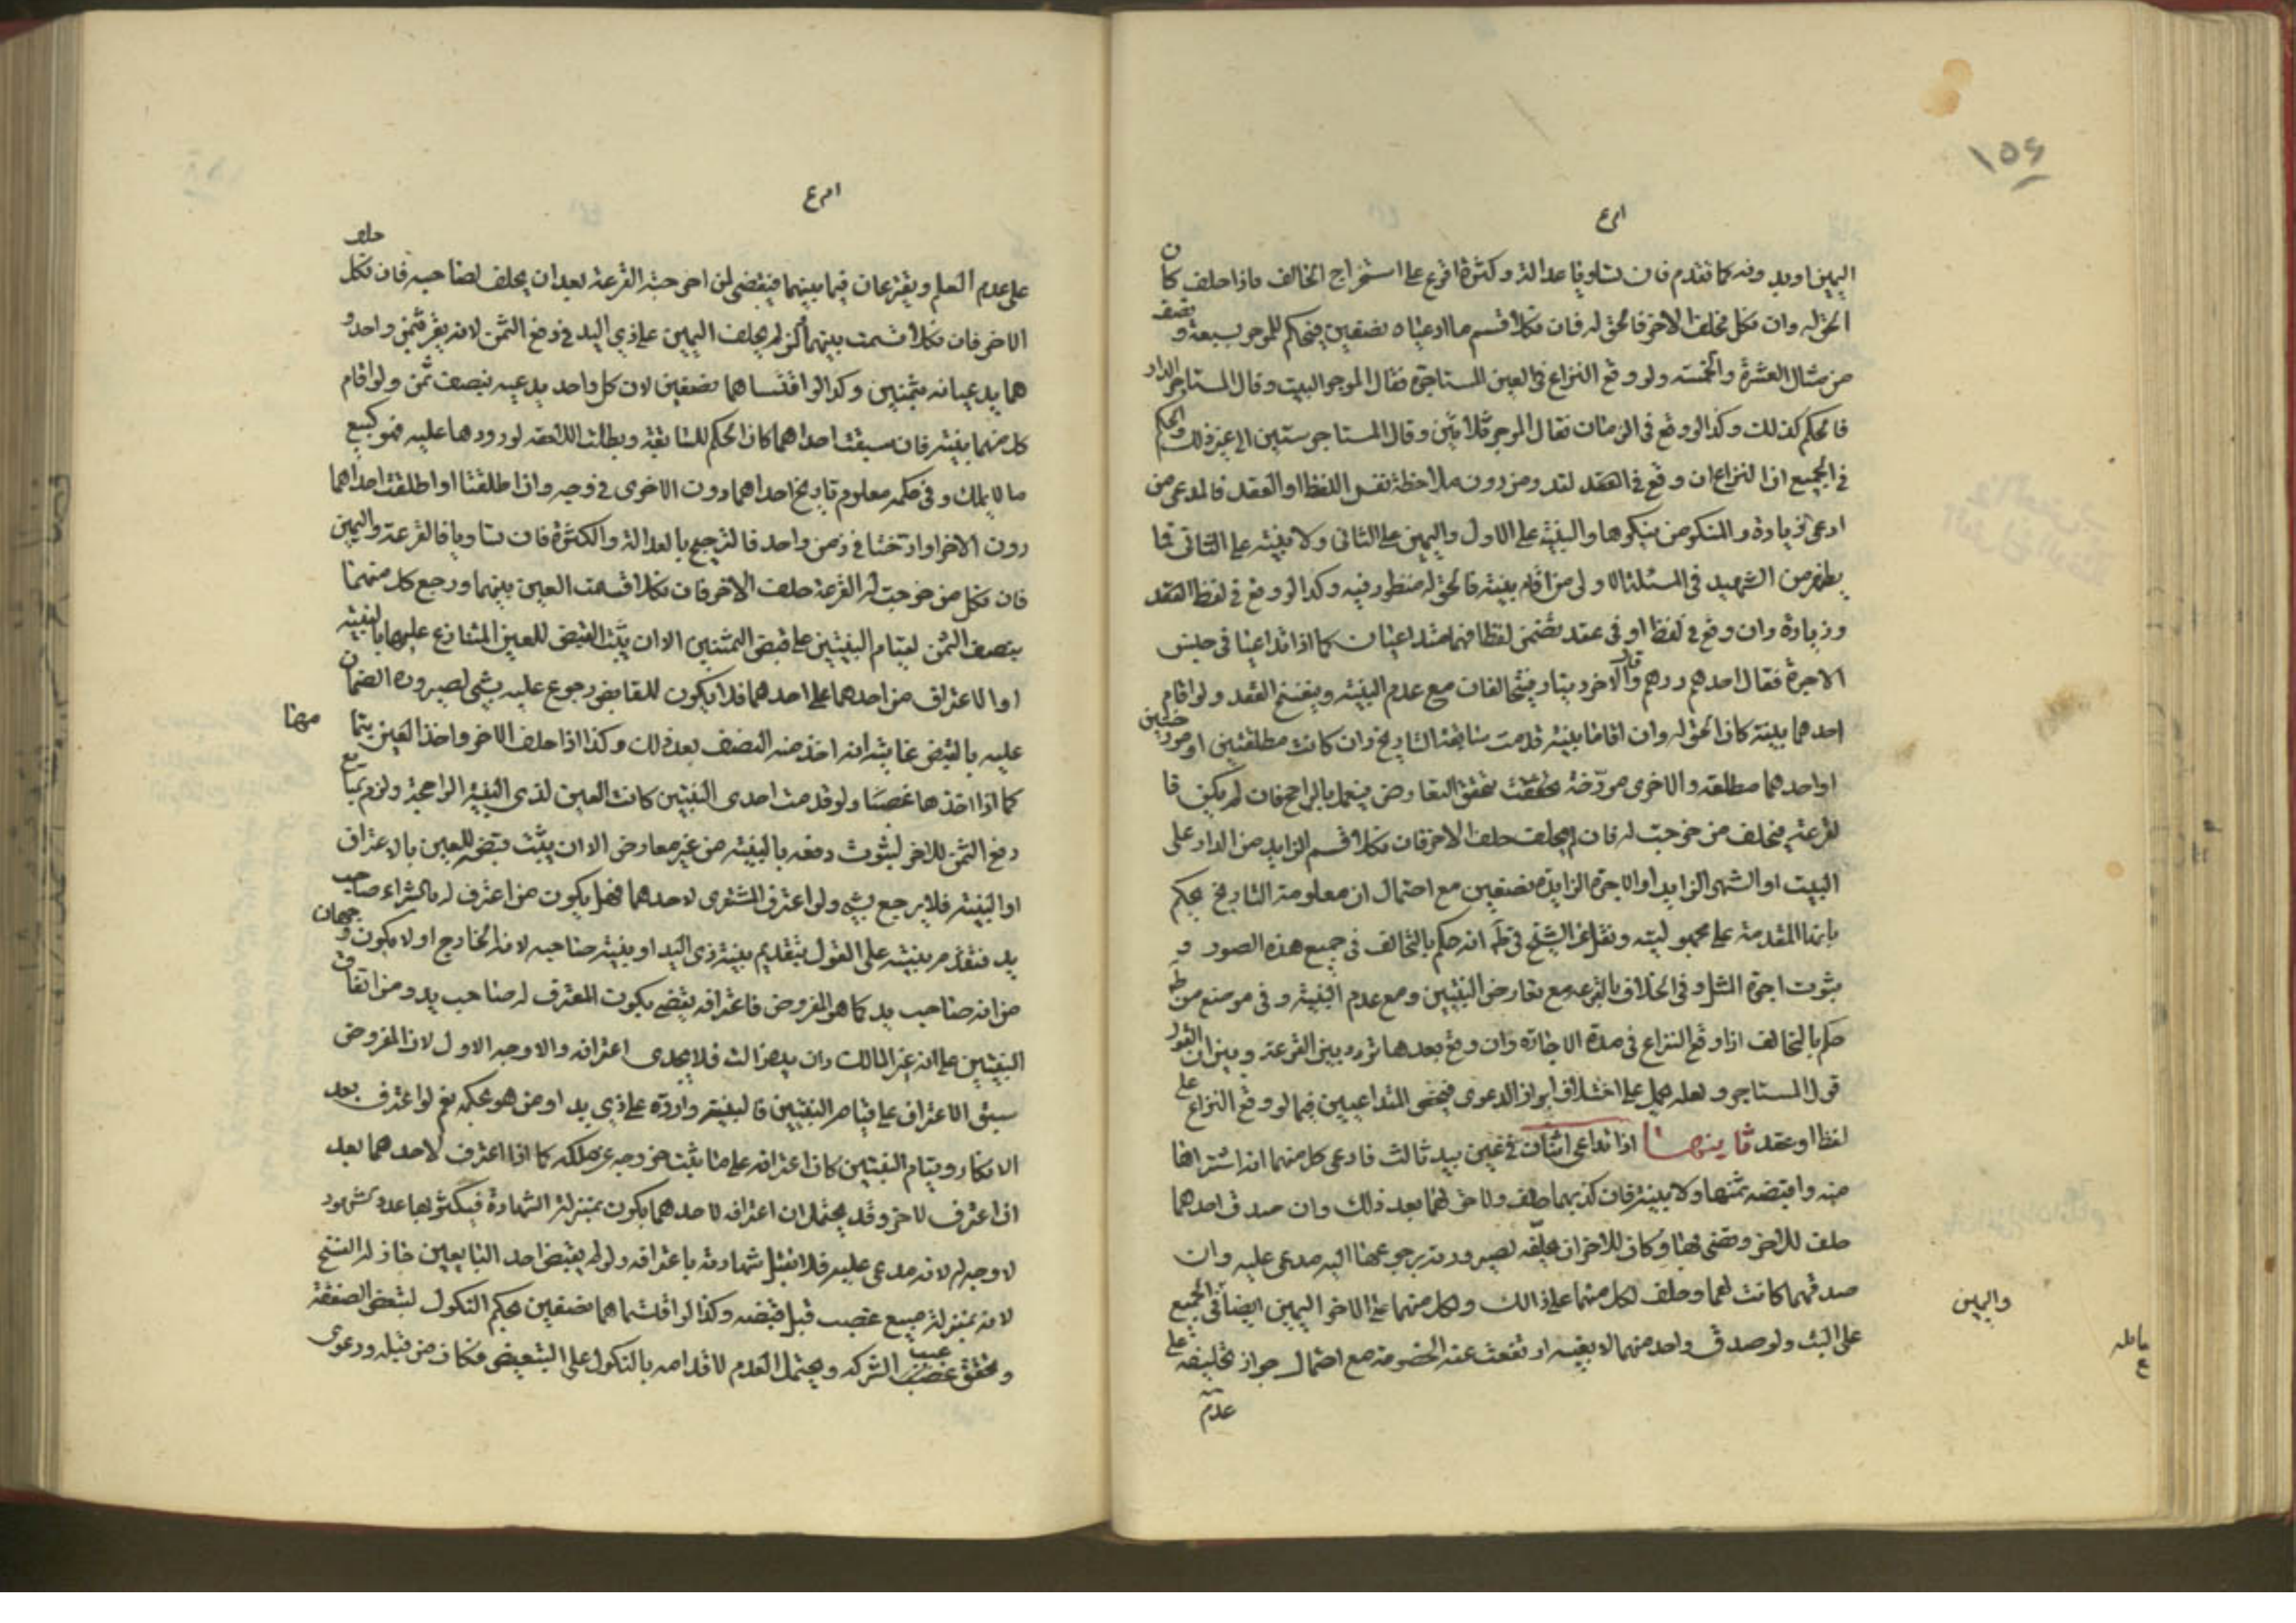 ١٥٤
اليمين او بدونه كما تقدم فان تساويا عدالة وكثرة اقرع على استخراج الحالف فاذا حلف كان
الحق له وان نكل فحلف الاخر فالحق له فان نكلا قسم ما ادعياه نصفين فيحكم للموجر بسبعة ونصف
من مثال العشرة والخمسة ولو وقع النزاع في العين المستاجرة فقال الموجر البيت وقال المستاجر الدار
فالحكم كذلك وكذا لو وقع في الزمان فقال الموجر ثلاثين وقال المستاجر ستين الى غير ذلك والحكم
في الجميع ان النزاع ان وقع في العقد من دون ملاحظة نفس اللفظ او العقد فالمدعي من
ادعى زيادة والمنكر من ينكرها والبينة على الاول واليمين على الثاني ولا بينة على الثاني فما
يظهر من الشهيد في المسئلة الاولى من اقام بينة فالحق له منظور فيه وكذا لو وقع في لفظ العقد
وزيادة وان وقع في لفظ او في عقد تضمن لفظا فهما متداعيان كما اذا تداعيا في جنس
الاجرة فقال احدهم درهم وقال الاخر دينار فيتحالفان مع عدم البينة وينفسخ العقد ولو اقام
احدهما بينة كان الحق له وان اقاما بينة قدمت سابقة التاريخ وان كانت مطلقتين او مورختين
او احدهما مطلقة والاخرى مورخة تحقق التعارض فيعمل بالراجح فان لم يكن فا
لقرعة فيحلف من خرجت له فان لم يحلف حلف الاخر فان نكلا قسم الزايد من الدار على
البيت او الشهر الزايد او الاجرة الزايدة نصفين مع احتمال ان معلومة التاريخ يحكم
بانها المقدمة على مجهوليته ونقل عن الشيخ في ط انه حكم بالتحالف في جميع هذه الصور و
بثوت اجرة المثل وفي الخلاف بالقرعة مع تعارض البينتين ومع عدم البينة وفي موضع من ط
حكم بالتحالف اذا وقع النزاع في مدة الاجارة وان وقع بعدها تردد بين القرعة وبين ان القول
قول المستاجر ولعله يحمل على اختلاف ابراز الدعوى فيخص المتداعيين فيما لو وقع النزاع على
لفظ او عقد ثانيها اذا تداعى اثنان في عين بيد ثالث فادعى كل منهما انه اشتراها
منه واقبضه ثمنها ولا بينة فان كذبهما حلف ولا حق لهما بعد ذلك وان صدق احدهما
حلف للاخر وقضي بها وكان للاخر ان يحلفه لصيرورته يرجوعها اليه مدعى عليه وان
صدقهما كانت لهما وحلف لكل منهما على ذالك ولكل منهما على الاخر اليمين ايضا في الجميع
واليمين
على البت ولو صدق واحد منهما لا بعينه ارتفعت عنه الخصومة مع احتمال جواز تحليفه على
عدم
على عدم العلم ويقترعان فيما بينهما فيقضى لمن اخرجته القرعة بعد ان يحلف لصاحبه فان نكل حلف
الاخر فان نكلا قسمت بينهما لكن لم يحلف اليمين على ذي اليد في دفع الثمن لانه يقر بثمن واحد و
هما يدعيانه بثمنين وكذا لو اقتسماها نصفين لان كل واحد يدعيه بنصف ثمن ولو اقام
كل منهما بينة فان سبقت احداهما كان الحكم للسابقة وبطلت اللاحقة لورودها عليه فهو كبيع
ما لا يملك وفي حكمه معلوم تاريخ احداهما دون الاخرى في وجه وان اطلقتا او اطلقت احداهما
دون الاخر او ارختا في زمن واحد فالترجيح بالعدالة والكثرة فان تساويا فالقرعة واليمين
فان نكل من خرجت له القرعة حلف الاخر فان نكلا قسمت العين بينهما ورجع كل منهما
بنصف الثمن لقيام البينتين على قبض الثمنين الا ان يثبت القبض للعين المتنازع عليها بالبينة
او الاعتراف من احدهما على احدهما فلا يكون للقابض رجوع عليه بشي لصيرورة الضمان
عليه بالقبض غايته انه اخذ منه النصف بعد ذلك وكذا اذا حلف الاخر واخذ العين بتما مها
كما اذا اخذها غصبا ولو قدمت احدى البينتين كانت العين لذي البينة الراجحة ولزم البايع
دفع الثمن للاخر لثبوت دفعه بالبينة من غير معارض الا ان يثبت قبضه للعين بالاعتراف
او البينة فلا يرجع بشي ولو اعترف المشترى لاحدهما فهل يكون من اعترف له بالشراء صاحب
يد فتقدم بينته على القول بتقديم بينة ذي اليد او بينة صاحبه لانه الخارج او لا يكون وجهان
من انه صاحب يد كما هو المفروض فاعترافه يقضي بكون المعترف له صاحب يد ومن اتفاق
البينتين على انه غير المالك وان يده زالت فلا يجدى اعترافه والاوجه الاول لان المفروض
سبق الاعتراف على قيام البينتين فالبينة واردة على ذي يد او من هو بحكمه نعم لو اعترف بعد
الانكار وقيام البينتين كان اعترافه على ما يثبت خروجه عن ملكه كما اذا اعترف لاحدهما بعد
ان اعترف لاخر وقد يحتمل ان اعترافه لاحدهما يكون بمنزلة الشهادة فيكثر بها عدد شهود
لا وجه له لانه مدعى عليه فلا تقبل شهادته باعترافه ولو لم يقبض احد البايعين جاز له الفسخ
لانه بمنزلة مبيع غصب قبل قبضه وكذا لو اقتسماها نصفين بحكم النكول لتبعض الصفقة
وتحقق عيب الشركة ويحتمل العدم لاقدامه بالنكول على التبعيض فكان من قبله ودعوى